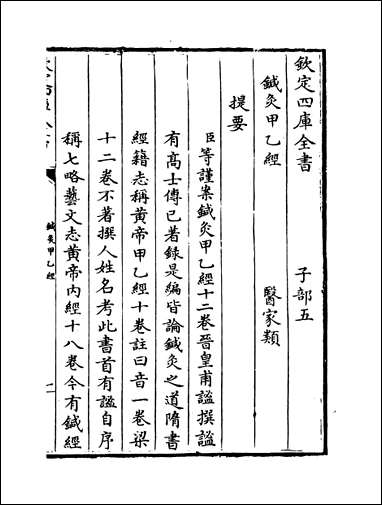 欽定四庫全書　子部五
鍼灸甲乙經　醫家類
提要
臣等謹案鍼灸甲乙經十二卷晉皇甫謐撰謐
有髙士傳已著錄是編皆論鍼灸之道隋書
經籍志稱黄帝甲乙經十卷註曰音一卷梁
十二卷不著撰人姓名考此書首有謐自序
稱七略藝文志黄帝内經十八卷今有鍼經
鍼灸甲乙經